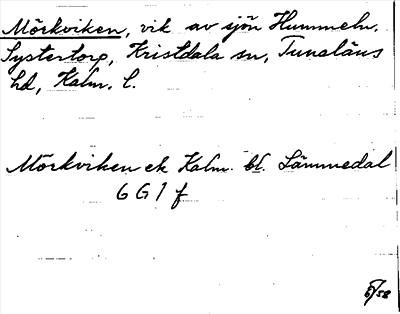 Mörkviken, vik av sjön Hummeln.
Systertorp, Kristdala sn, Tunaläns
hd, Kalm. l.
Mörkviken ek Kalm. bl. Lämmedal
6 G 1 f
6/58